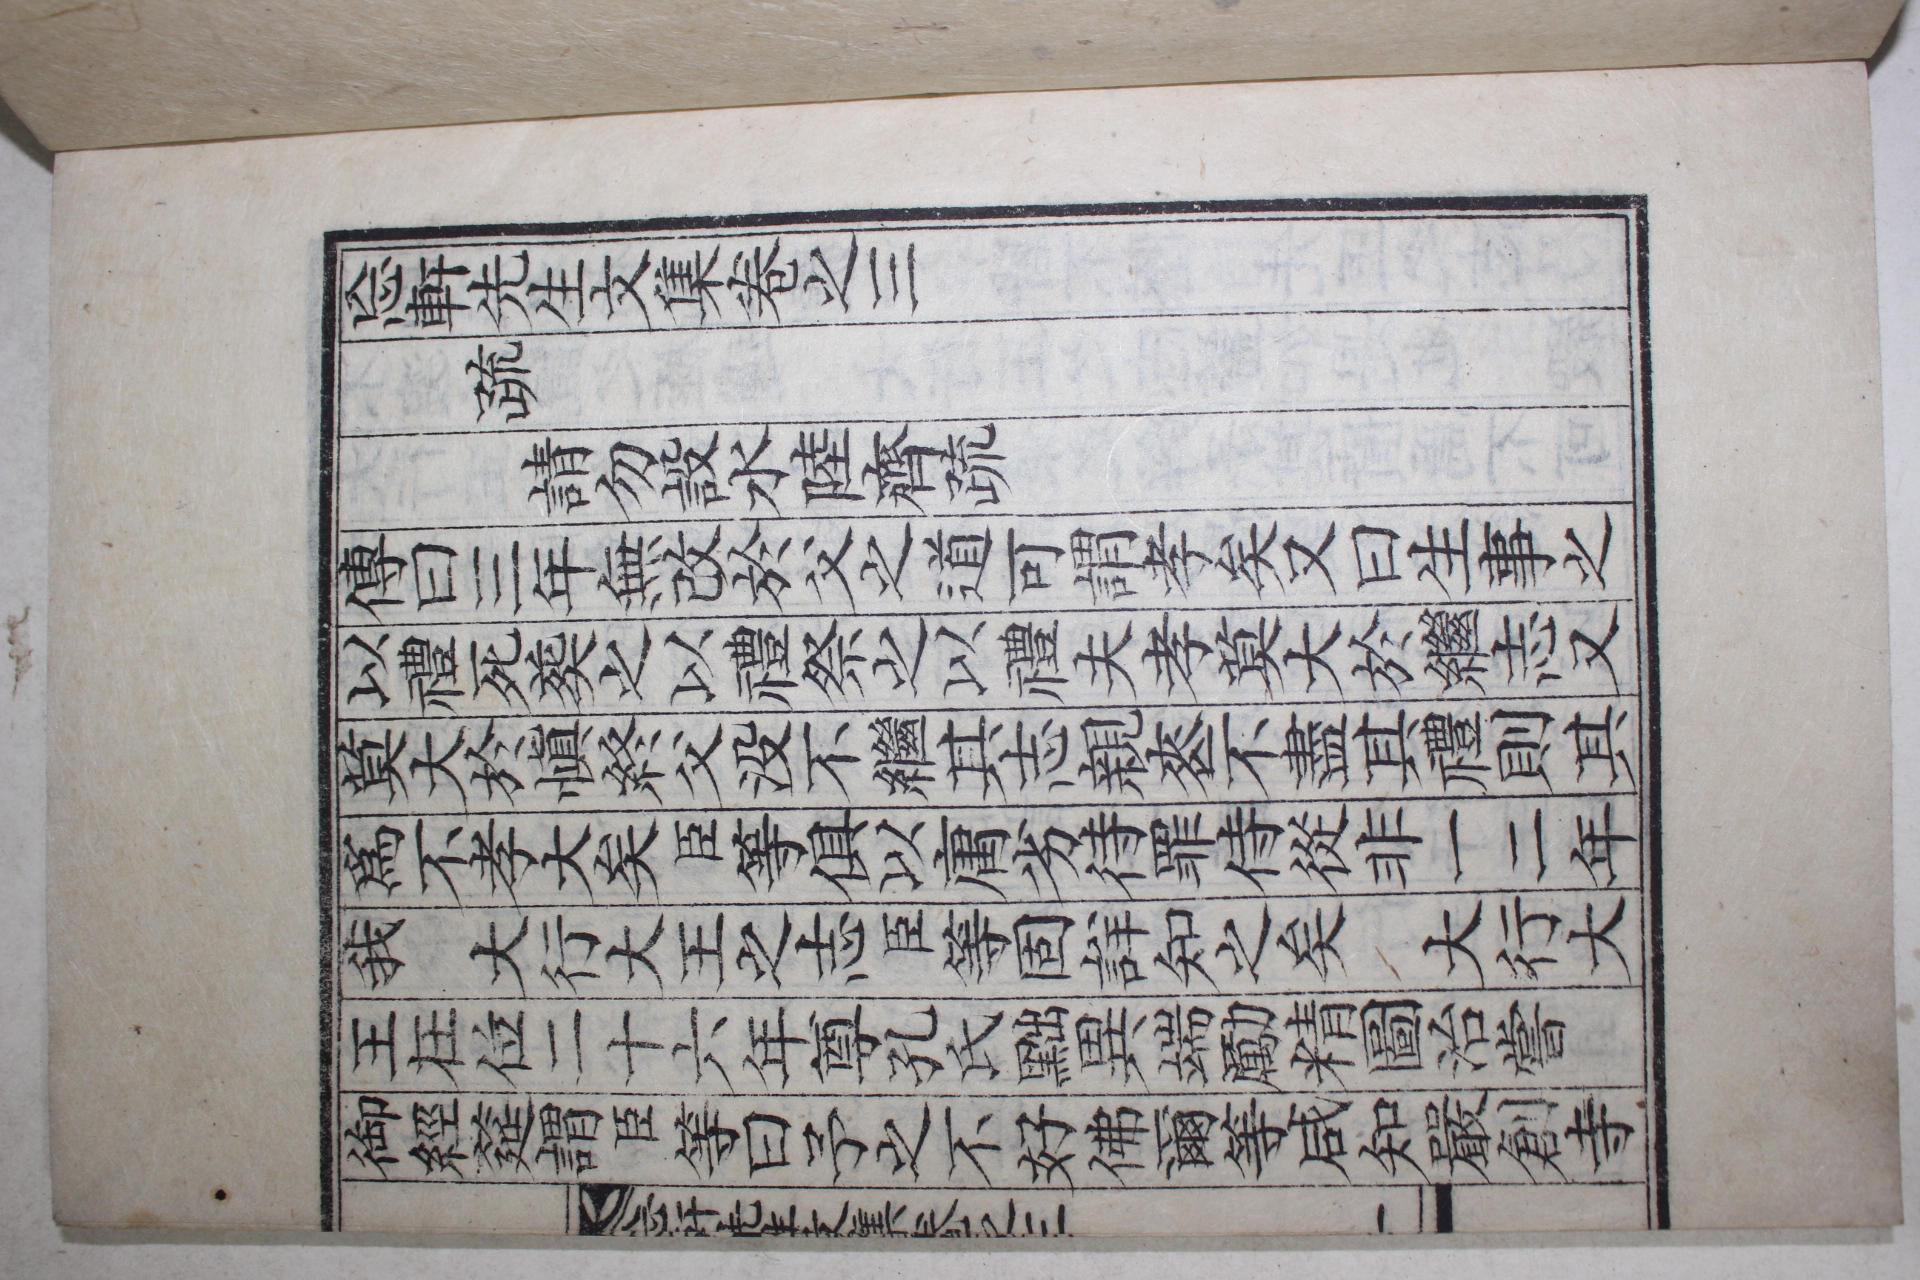 㤀軒先生文集卷之三
疏
請勿設水陸齊疏
傳曰三年無改於父之道可謂孝矣又曰生事之
以禮死葬之以禮祭之以禮夫孝莫大於繼志又
莫大於愼終父没不繼其志親喪不盡其禮則其
爲不孝大矣臣等俱以庸劣待罪侍從非一二年
我　大行大王之志臣等固詳知之矣　大行大
王在位二十六年尊孔氏黜異端勵精圖治嘗
御經筵謂臣等曰予之不好佛爾等咸知嚴創寺
㤀軒先生文集卷之三　一